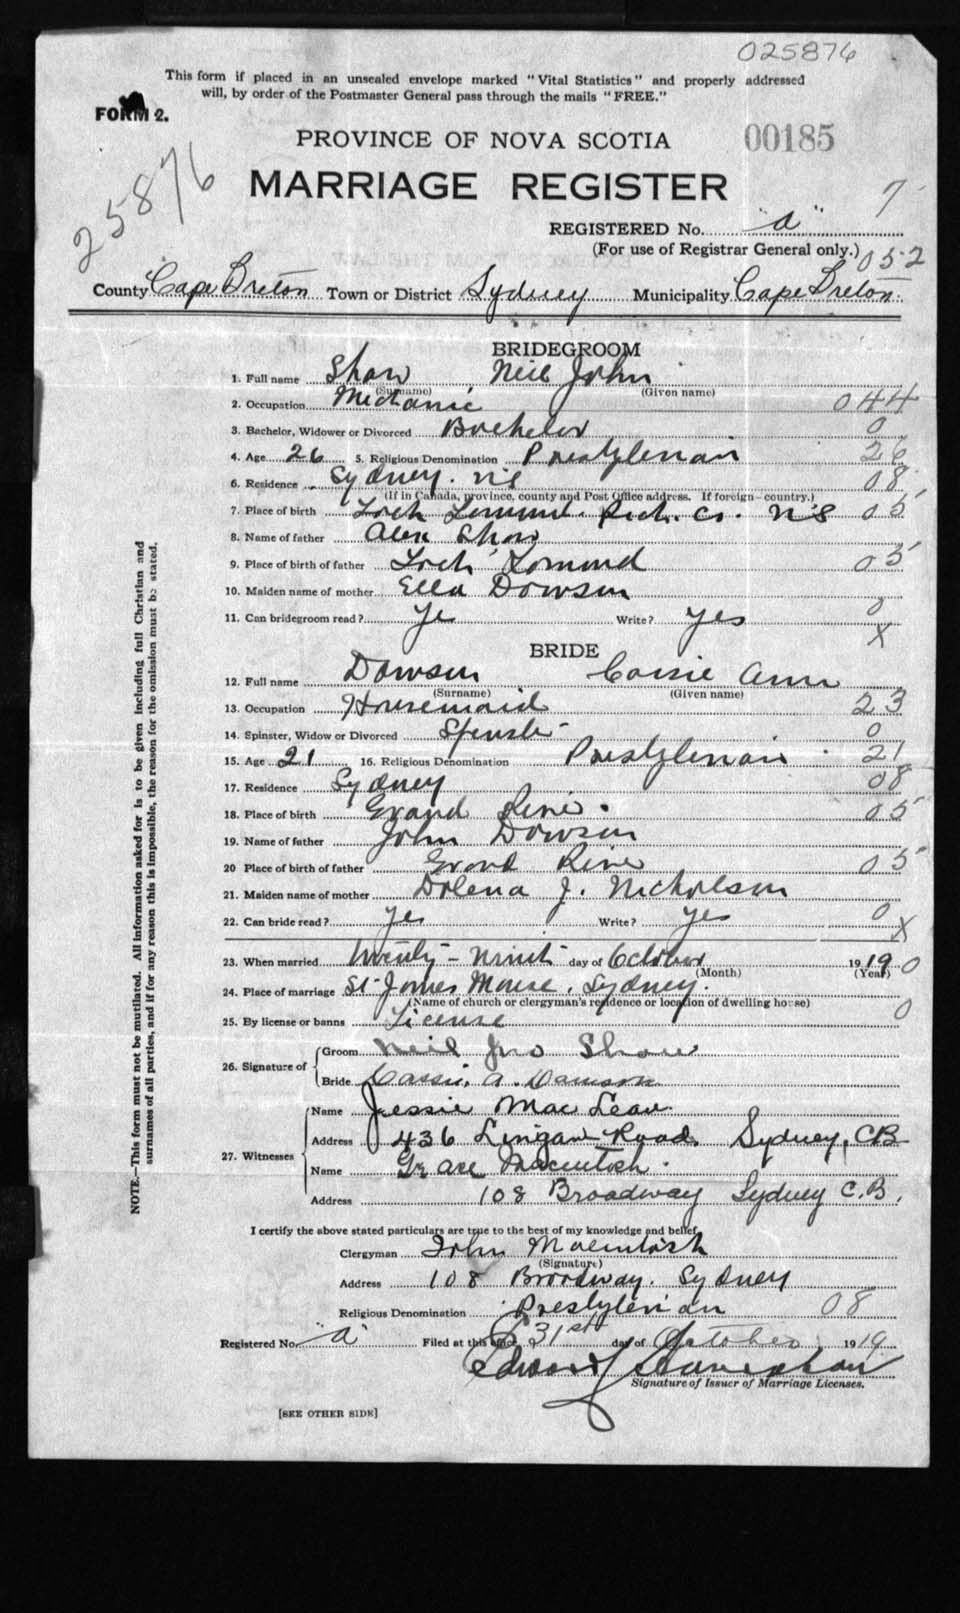 025876
This form if placed in an unsealed envelope marked "Vital Statistics" and properly addressed
will, by order of the Postmaster General pass through the mails "FREE."
FORM 2.
PROVINCE OF NOVA SCOTIA 00185
25876
MARRIAGE REGISTER
7
REGISTERED No. "a"
(For use of Registrar General only.) 052
County Cape Breton Town or District Sydney Municipality Cape Breton.
BRIDEGROOM
1. Full name Shaw Neil John
(Surname) (Given name)
2. Occupation Mechanic 044
3. Bachelor, Widower or Divorced Bachelor 0
4. Age 26 5. Religious Denomination Presbyterian 26
6. Residence Sydney. NS 08
(If in Canada, province, county and Post Office address. If foreign-country.)
7. Place of birth Loch Lomond. Rich. Co. NS 05
8. Name of father Alex Shaw
9. Place of birth of father Loch Lomond 05
10. Maiden name of mother Ella Dowson
11. Can bridegroom read? Ye Write? Yes 0
X
BRIDE
12. Full name Dowson Cassie Ann
(Surname) (Given name)
13. Occupation Housemaid 23
14. Spinster, Widow or Divorced Spinster 0
15. Age 21 16. Religious Denomination Presbyterian 21
17. Residence Sydney 08
18. Place of birth Grand River. 05
19. Name of father John Dowson
20 Place of birth of father Grand River 05
21. Maiden name of mother Dolena J. Nicholson
22. Can bride read? yes Write? yes 0
X
23. When married Twenty-Ninth day of October 1919 0
(Month) (Year)
24. Place of marriage St James Manse, Sydney.
(Name of church or clergyman's residence or location of dwelling house) 0
25. By license or banns License
26. Signature of Groom Neil Jno Shaw
Bride Cassie A. Dawson
27. Witnesses Name Jessie MacLean
Address 436 Lingan Road, Sydney, CB
Name Grace Macintosh.
Address 108 Broadway Sydney C.B.
I certify the above stated particulars are true to the best of my knowledge and belief,
Clergyman John Macintosh
(Signature)
Address 108 Broadway. Sydney
Religious Denomination Presbyterian 08
Registered No. "a" Filed at this office, 31st day of October 1919
Edward
Signature of Issuer of Marriage Licenses.
[SEE OTHER SIDE]
NOTE.—This form must not be mutilated. All information asked for is to be given including full Christian and
surnames of all parties, and if for any reason this is impossible, the reason for the omission must be stated.